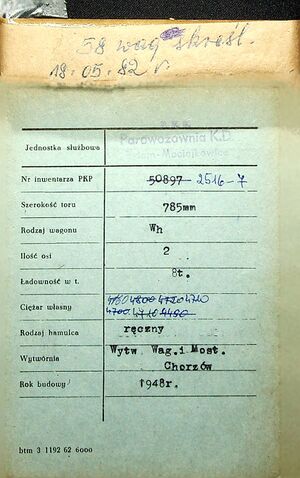 58 wag skreśl.
18.05.82 r
PKP
Parowozownia K.D.
Jednostka służbowa
Nr inwentarza PKP 50897 2516-7
Szerokość toru 785mm
Rodzaj wagonu Wh
Ilość osi 2
Ładowność w t. 8t.
Ciężar własny 4720 4710
Rodzaj hamulca ręczny
Wytwórnia Wytw. Wag.i Most.
Chorzów
Rok budowy 1948r.
btm 3 1192 62 6000